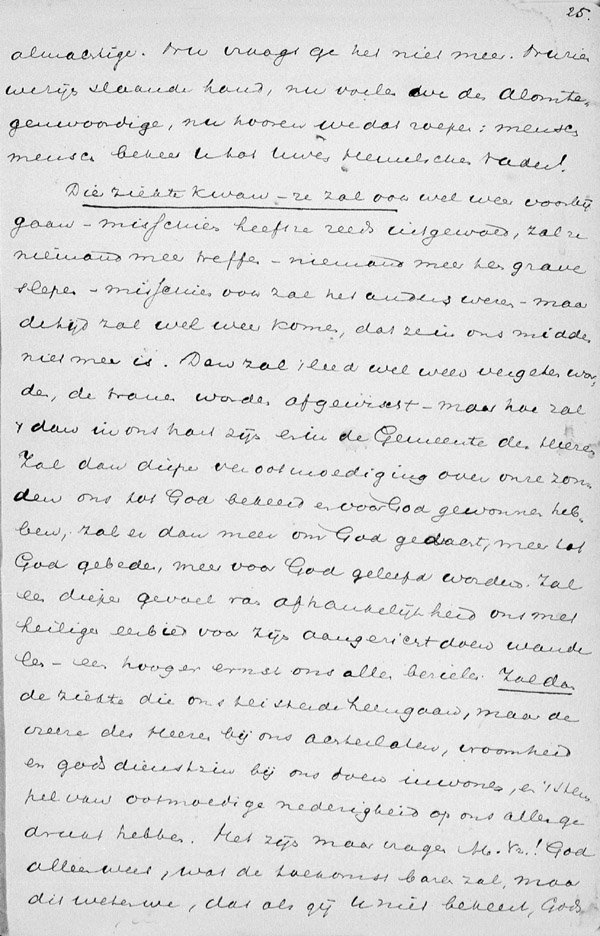 25.
almachtige. Nu vraagt ge het niet meer. Nu zien
we zijn slaande hand, nu voelen we den Alomte-
genwoordige, nu hooren we dat roepen: mensch
mensch bekeer U tot Uwen Hemelschen Vader!
Die ziekte kwam – ze zal ook wel weer voorbij
gaan – misschien heeft ze reeds uitgewoed, zal ze
niemand meer treffen – niemand meer ten grave
slepen – misschien ook zal het anders wezen – maar
de tijd zal wel weer komen, dat ze in ons midden
niet meer is. Dan zal 't leed wel weer vergeten wor-
den, de tranen worden afgewischt – maar hoe zal
't dan in ons hart zijn en in de Gemeente des Heeren
Zal dan diepe verootmoediging over onze zon-
den ons tot God bekeerd en voor God gewonnen heb-
ben, zal er dan meer om God gedacht, meer tot
God gebeden, meer voor God geleefd worden. Zal
een dieper gevoel van afhankelijkheid ons met
heiligen eerbied voor Zijn aangezicht doen wande
len – een hooger ernst ons allen bezielen. Zal dan
de ziekte die ons teisterde heengaan, maar de
vreeze des Heeren bij ons achterlaten, vroomheid
en godsdienstzin bij ons doen inwonen, en 't stem
pel van ootmoedige nederigheid op ons allen ge
drukt hebben. Het zijn maar vragen M. Vr.! God
alleen weet, wat de toekomst baren zal, maar
dit weten we, dat als gij U niet bekeert, Gods